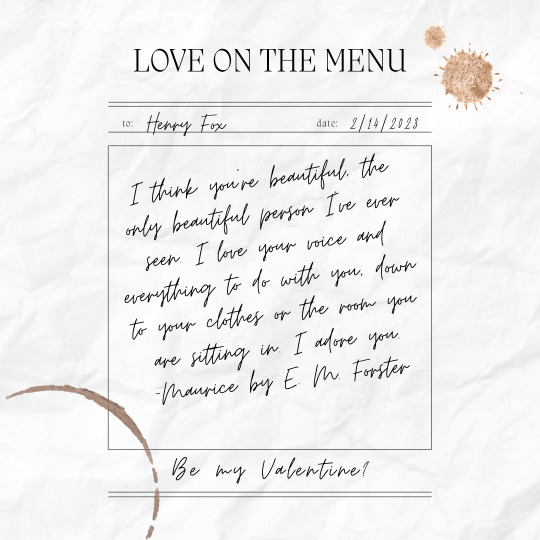 LOVE ON THE MENU
to: Henry Fox date: 2/14/2023
I think you're beautiful, the
only beautiful person I've ever
seen. I love your voice and
everything to do with you, down
to your clothes or the room you
are sitting in. I adore you.
-Maurice by E. M. Forster
Be my Valentine?